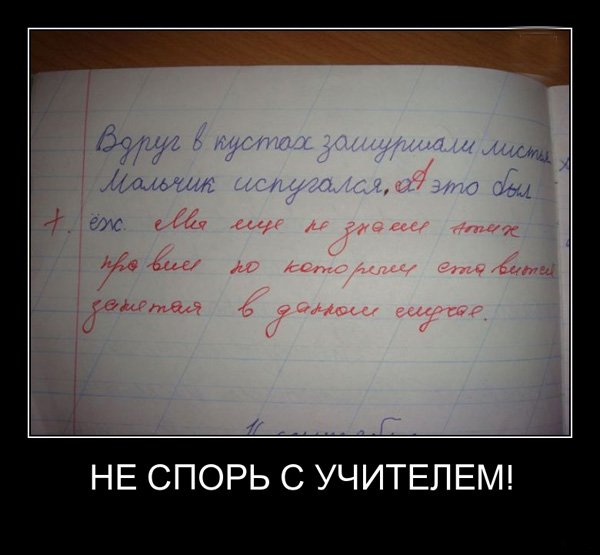 Вдруг в кустах зашуршали листья
Мальчик испугался. А это был
ёж. Мы еще не знаем этих
правил по которым ставится
запятая в данном случае.
НЕ СПОРЬ С УЧИТЕЛЕМ!